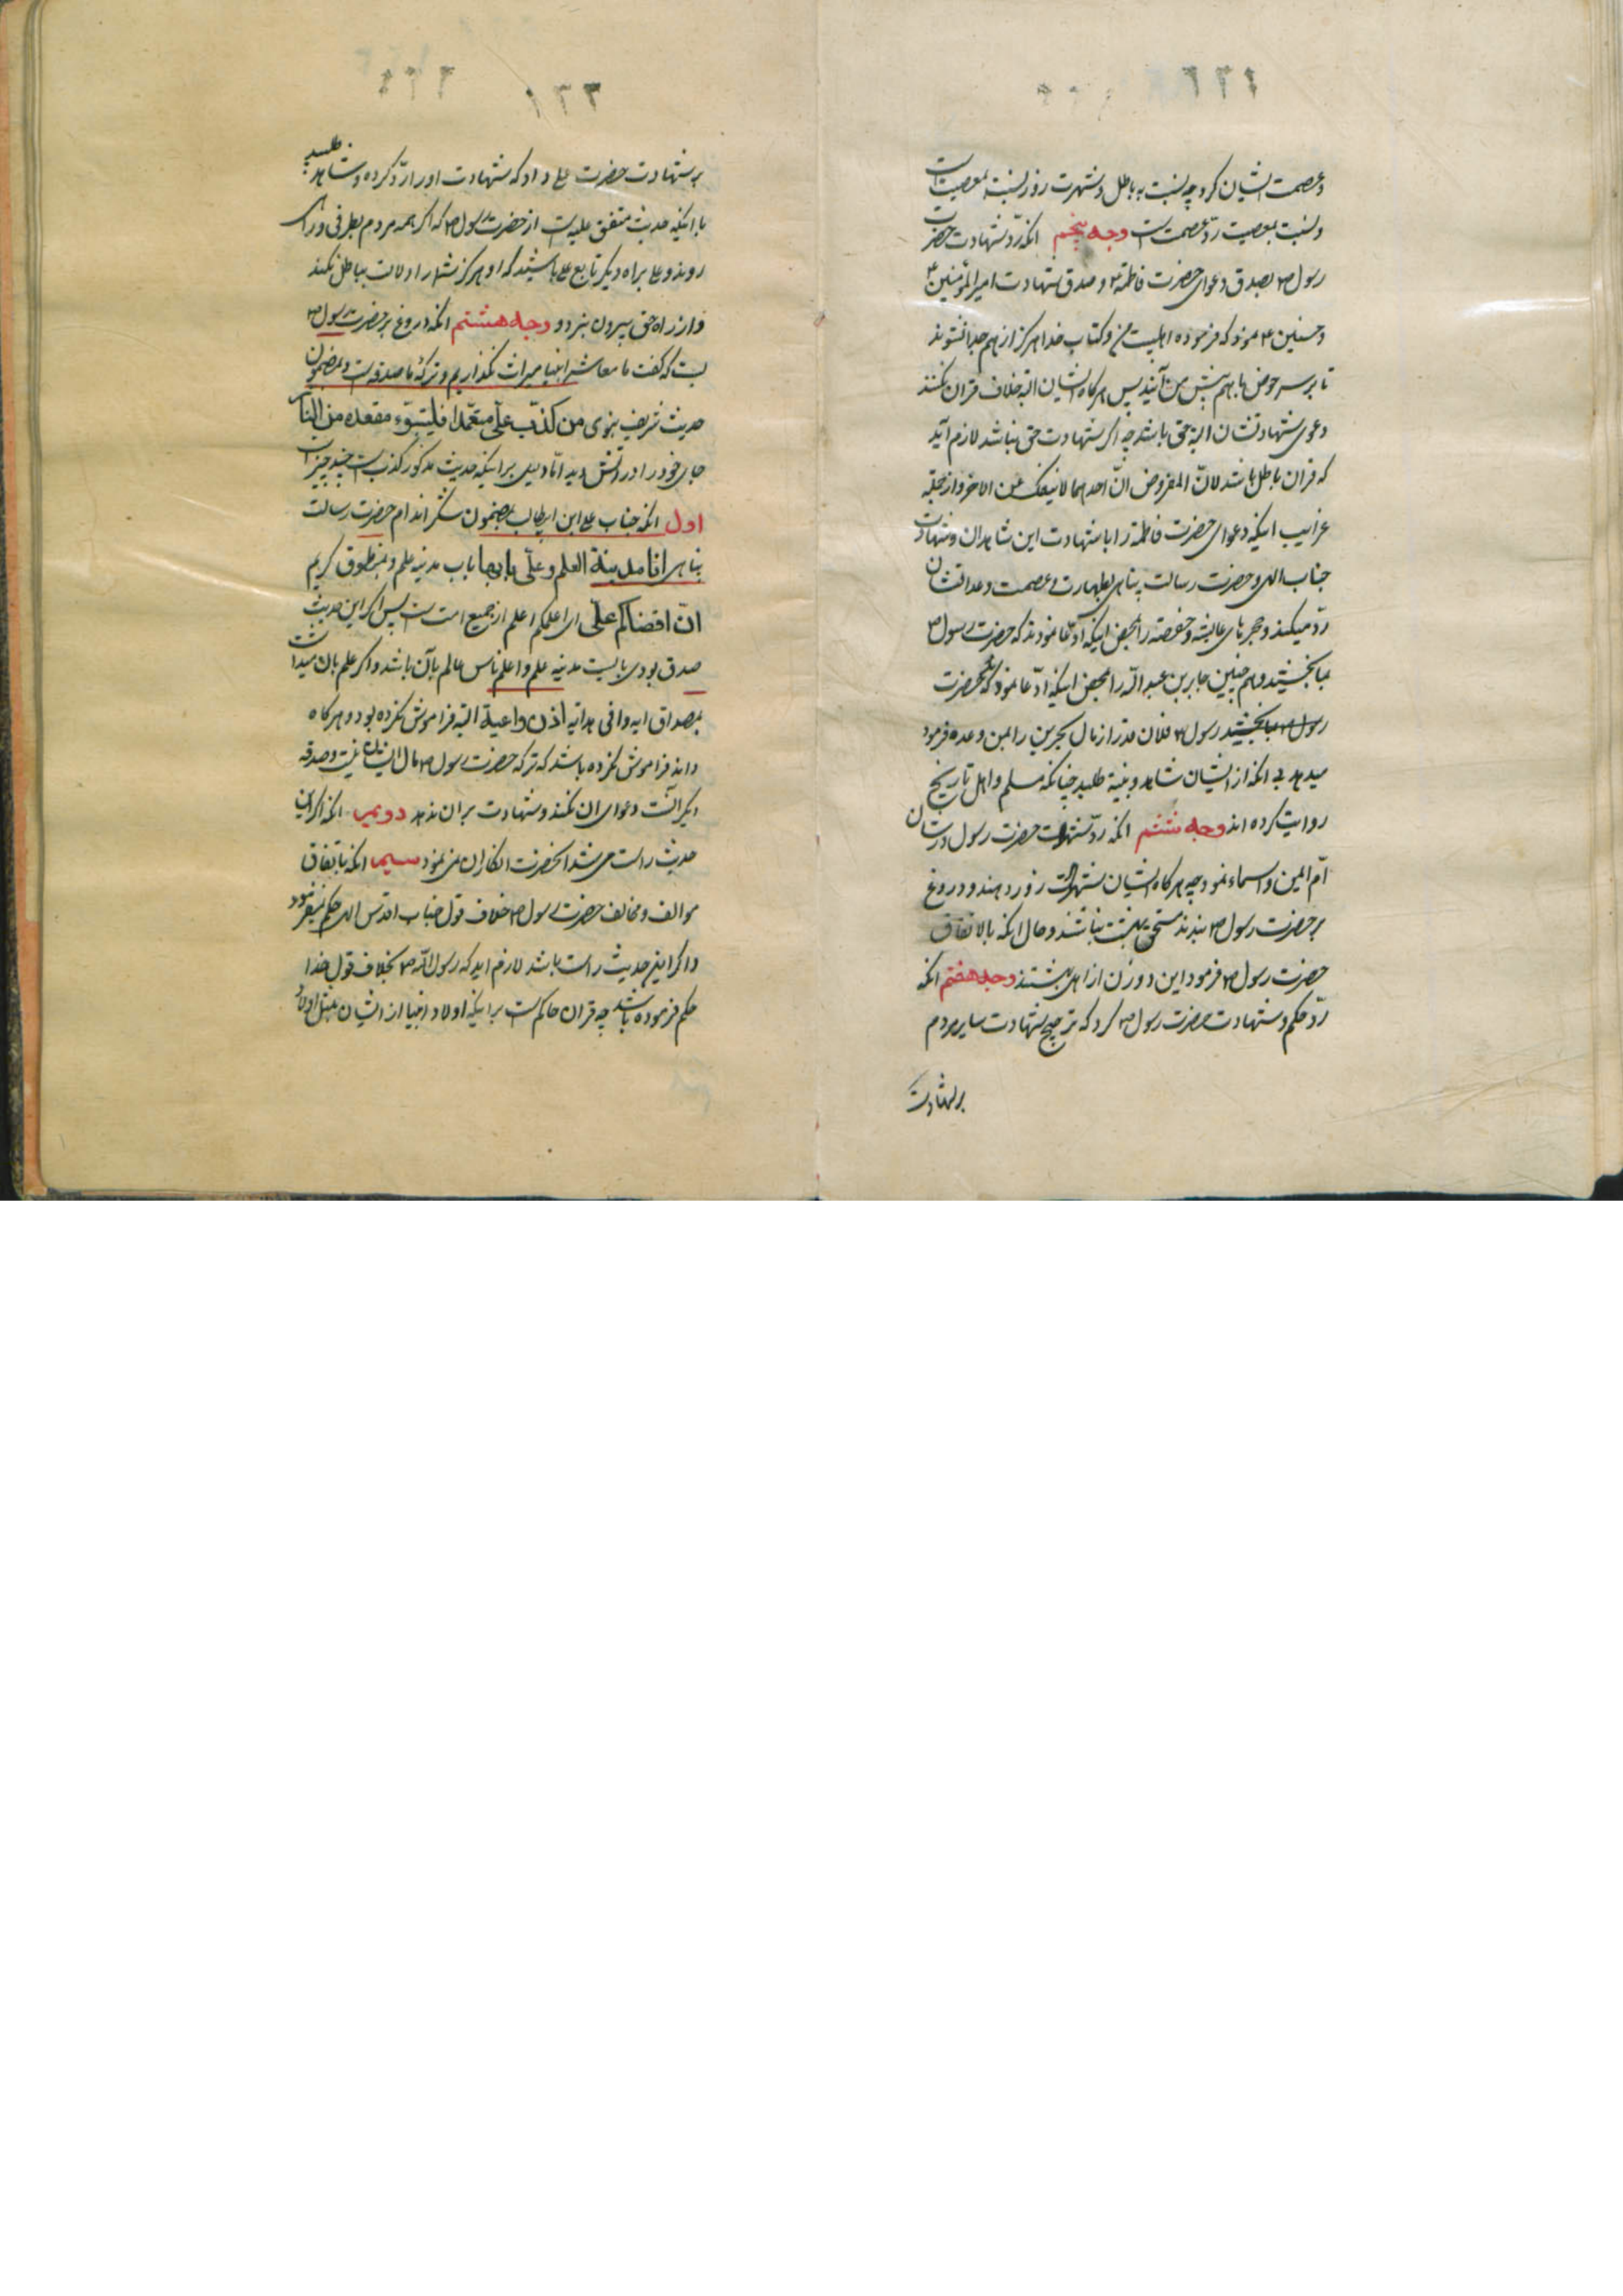 وعصمت ایشان کرد چه نسبت به باطل و شهرت زور نسبة بمعصیت است
و نسبت بمعصیت ردّ عصمت است وجه پنجم انکه ردّ شهادت حضرت
رسول ص بصدق دعوای حضرت فاطمة ع و صدق شهادت امیر المؤمنین ع
و حسنین ع نمود که فرموده اهلبیت من و کتاب خدا هرکز از هم جدا نشوند
تا بر سر حوض با هم پیش من آیند پس هرکاه ایشان البته خلاف قران نکنند
دعوی شهادتشان البته حق باشد چه اکر شهادت حق نباشد لازم آید
که قران باطل باشد لانّ المفروض انّ احدهما لا ینفک عن الاخر و از جمله
غرایب اینکه دعوای حضرت فاطمة را با شهادت این شاهدان و شهادت
جناب الهی و حضرت رسالت پناهی بطهارت و عصمت و عدالتشان
ردّ میکند و حجرهای عایشه و حفصه را بمحض اینکه ادّعا نمودند که حضرت رسول ص
بما بخشید و هم چنین جابر بن عبد الله را بمحض اینکه ادّعا نمود که حضرت
رسول ص بما بخشید رسول ص فلان قدر از مال بحرین را بمن وعده فرمود
میدهد بی انکه از ایشان شاهد و بینة طلبد چنانکه مسلم و اهل تاریخ
روایت کرده اند وجه ششم انکه ردّ شهادت حضرت رسول در شان
امّ ایمن و اسماء نمود چه هرکاه ایشان شهادت زور دهند و دروغ
بر حضرت رسول ص بندند مستحق بهشت نباشند و حال انکه بالاتفاق
حضرت رسول ص فرمود این دو زن از اهل بهشتند وجه هفتم انکه
ردّ حکم و شهادت حضرت رسول ص کرد که ترجیح شهادت سایر مردم
بر شهادت
بر شهادت حضرت علی داد که شهادت او را ردّ کرده و شاهد طلبید
با اینکه حدیث متفق علیه است از حضرت رسول ص که اکر همه مردم بطرفی و راه
روند و علی براه دیکر تابع علی باشید که او هرکز شما را دلالت بباطل نکند
و از راه حق بیرون نبرد و وجه هشتم انکه دروغ بر حضرت رسول ص
بست که کفت ما معاشر انبیا میراث نکذاریم و ترکهٔ ما صدقه است و بمضمون
حدیث شریف نبوی من کذب علیّ متعمّدا فلیتبوّء مقعده من النار
جای خود را در آتش دید امّا دلیل بر اینکه حدیث مذکور کذبست چند چیز است
اول انکه جناب علی ابن ابیطالب بمضمون حضرت رسالت
پناهی انا مدینة العلم و علیّ بابها باب مدینه علم و بمنطوق کریم
انّ اقضاکم علیّ ای اعلمکم اعلم از جمیع امت است پس اکر این حدیث
صدق بودی بایست مدینه علم و اعلم ناس عالم بآن باشد و اکر علم بان میداشت
بمصداق ایه وافی هدایه اذن واعیة البته فراموش نکرده بود و هرکاه
داند فراموش نکرده باشد که ترکه حضرت رسول ص مال ایشان نیست و صدقه
دعوای ان نکند و شهادت بر ان ندهد دویم انکه اکر این
حدیث راست می شد انحضرت انکار ان نمی نمود سیم انکه باتفاق
موالف و مخالف حضرت رسول ص خلاف قول جناب اقدس الهی حکم نمیفرمود
و اکر این حدیث راست باشد لازم اید که رسول الله ص بخلاف قول خدا
حکم فرموده باشد چه قران حاکم است بر اینکه اولاد انبیا از ایشان